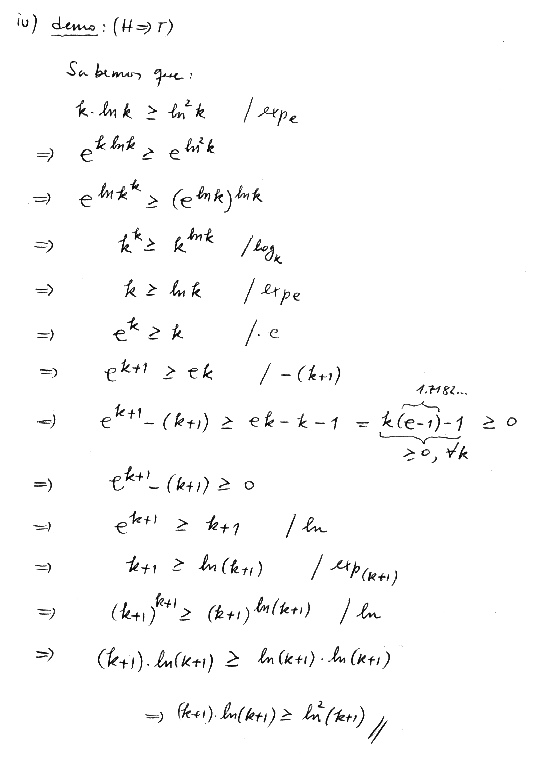 iv) demo: (H⇒T)
Sabemos que:
k·ln k ≥ ln²k / exp_e
⇒ e^(k ln k) ≥ e^(ln²k)
⇒ e^(ln k^k) ≥ (e^(ln k))^(ln k)
⇒ k^k ≥ k^(ln k) / log_k
⇒ k ≥ ln k / exp_e
⇒ e^k ≥ k / ·e
⇒ e^(k+1) ≥ ek / -(k+1)
1.7182...
⇒ e^(k+1) - (k+1) ≥ ek - k - 1 = k(e-1)-1 ≥ 0
≥0, ∀k
⇒ e^(k+1) - (k+1) ≥ 0
⇒ e^(k+1) ≥ k+1 / ln
⇒ k+1 ≥ ln(k+1) / exp_(k+1)
⇒ (k+1)^(k+1) ≥ (k+1)^(ln(k+1)) / ln
⇒ (k+1)·ln(k+1) ≥ ln(k+1)·ln(k+1)
⇒ (k+1)·ln(k+1) ≥ ln²(k+1) //